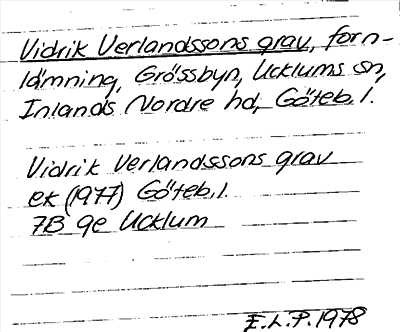 Vidrik Verlandssons grav, forn-
lämning, Grössbyn, Ucklums sn,
Inlands Nordre hd, Göteb. l.
Vidrik Verlandssons grav
ek (1977) Göteb. l.
7B 9e Ucklum
E.L.P. 1978